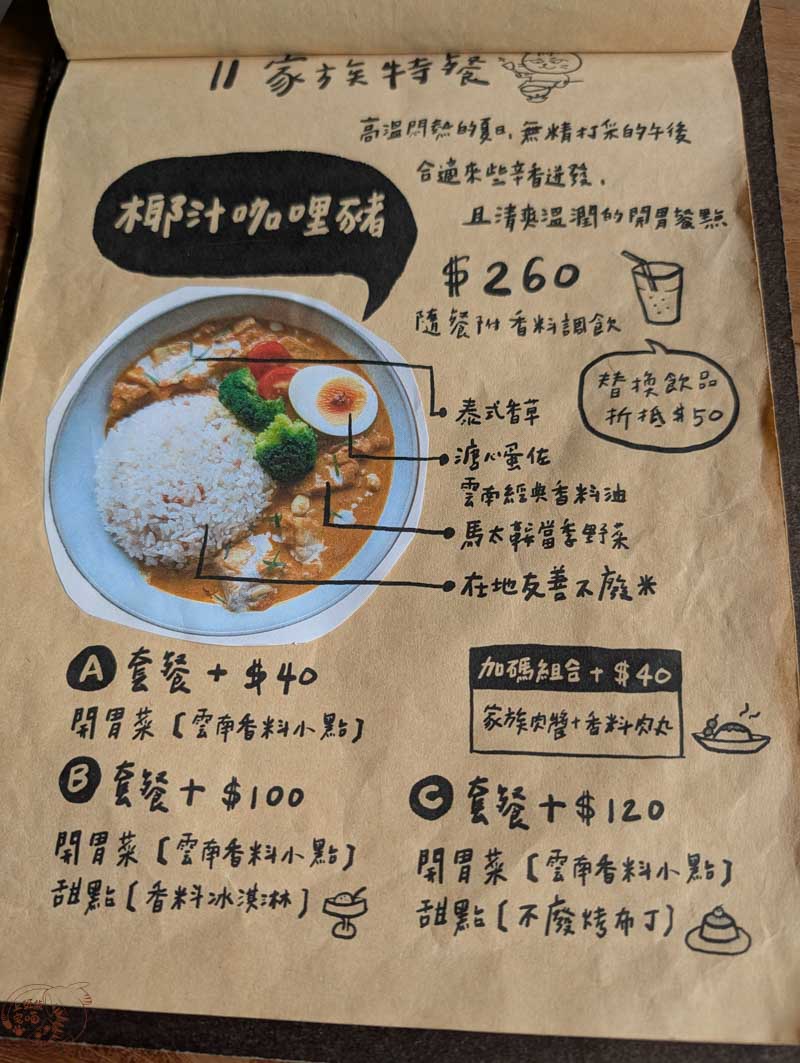 家族特餐
高溫悶熱的夏日，無精打采的午後
合適來些辛香迸發，
且清爽溫潤的開胃餐點
椰汁咖哩豬
$260
隨餐附香料調飲
替換飲品
折抵$50
泰式香草
溏心蛋佐
雲南經典香料油
馬太鞍當季野菜
在地友善不廢米
A 套餐 + $40
開胃菜〔雲南香料小點〕
加碼組合 + $40
家族肉醬+香料肉丸
B 套餐 + $100
開胃菜〔雲南香料小點〕
甜點〔香料冰淇淋〕
C 套餐 + $120
開胃菜〔雲南香料小點〕
甜點〔不廢烤布丁〕